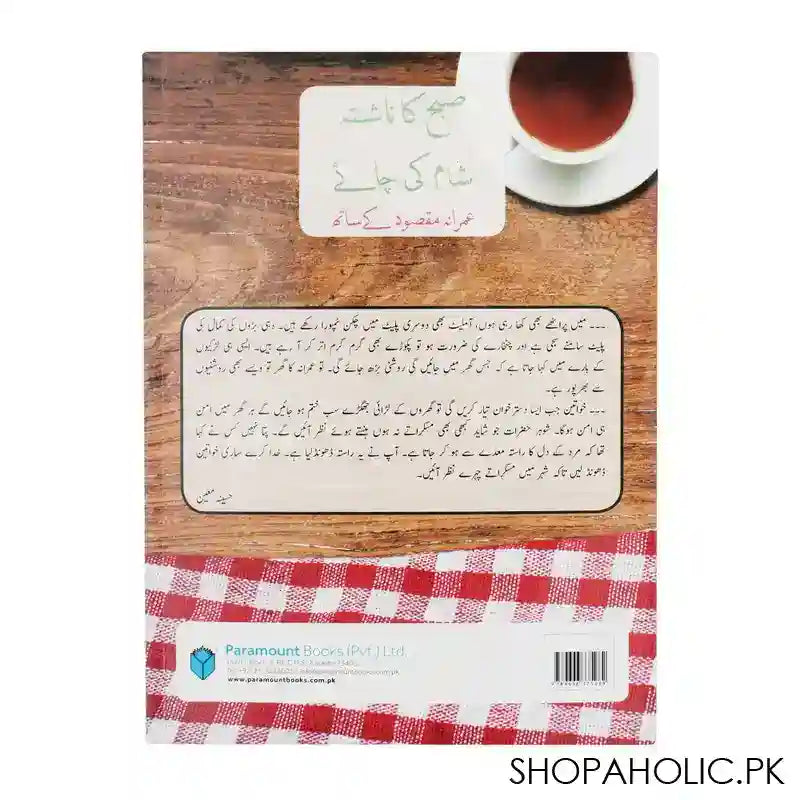 صبح کا ناشتہ
شام کی چائے
عمرانہ مقصود کے ساتھ
۔۔۔ میں پراٹھے بھی کھا رہی ہوں، آملیٹ بھی دوسری پلیٹ میں چکن ٹمپورا رکھے ہیں۔ دہی بڑوں کی کمال کی
پلیٹ سامنے سجی ہے اور چٹخارے کی ضرورت ہو تو پکوڑے بھی گرم گرم اتر کر آ رہے ہیں۔ ایسی ہی لڑکیوں
کے بارے میں کہا جاتا ہے کہ جس گھر میں جائیں گی روشنی بڑھ جائے گی۔ تو عمرانہ کا گھر تو ویسے بھی روشنیوں
سے بھرپور ہے۔
۔۔۔ خواتین جب ایسا دسترخوان تیار کریں گی تو گھروں کے لڑائی جھگڑے سب ختم ہو جائیں گے ہر گھر میں امن
ہی امن ہوگا۔ شوہر حضرات جو شاید کبھی بھی مسکراتے نہ ہوں ہنستے ہوئے نظر آئیں گے۔ پتا نہیں کس نے کہا
تھا کہ مرد کے دل کا راستہ معدے سے ہو کر جاتا ہے۔ آپ نے یہ راستہ ڈھونڈ لیا ہے۔ خدا کرے ساری خواتین
ڈھونڈ لیں تاکہ شہر میں مسکراتے چہرے نظر آئیں۔
حسینہ معین
Paramount Books (Pvt.) Ltd.
www.paramountbooks.com.pk
SHOPAHOLIC.PK